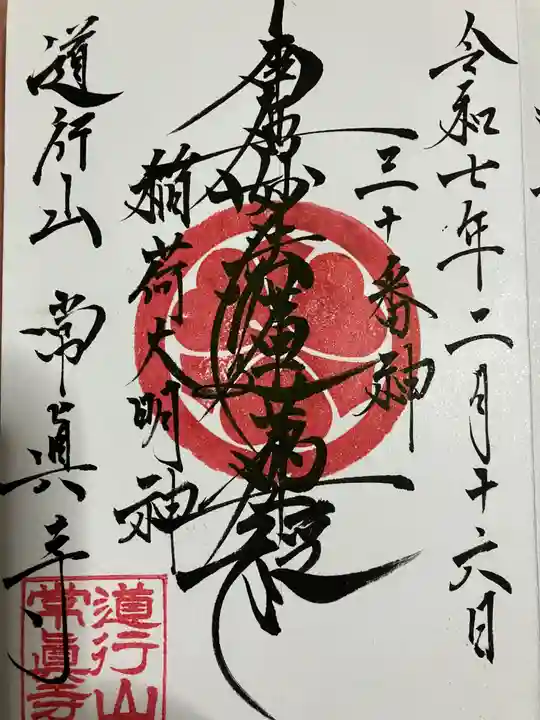 令和七年二月十六日
三十番神
南無妙法蓮華經
稲荷大明神
道行山 常眞寺
道行山
常眞寺